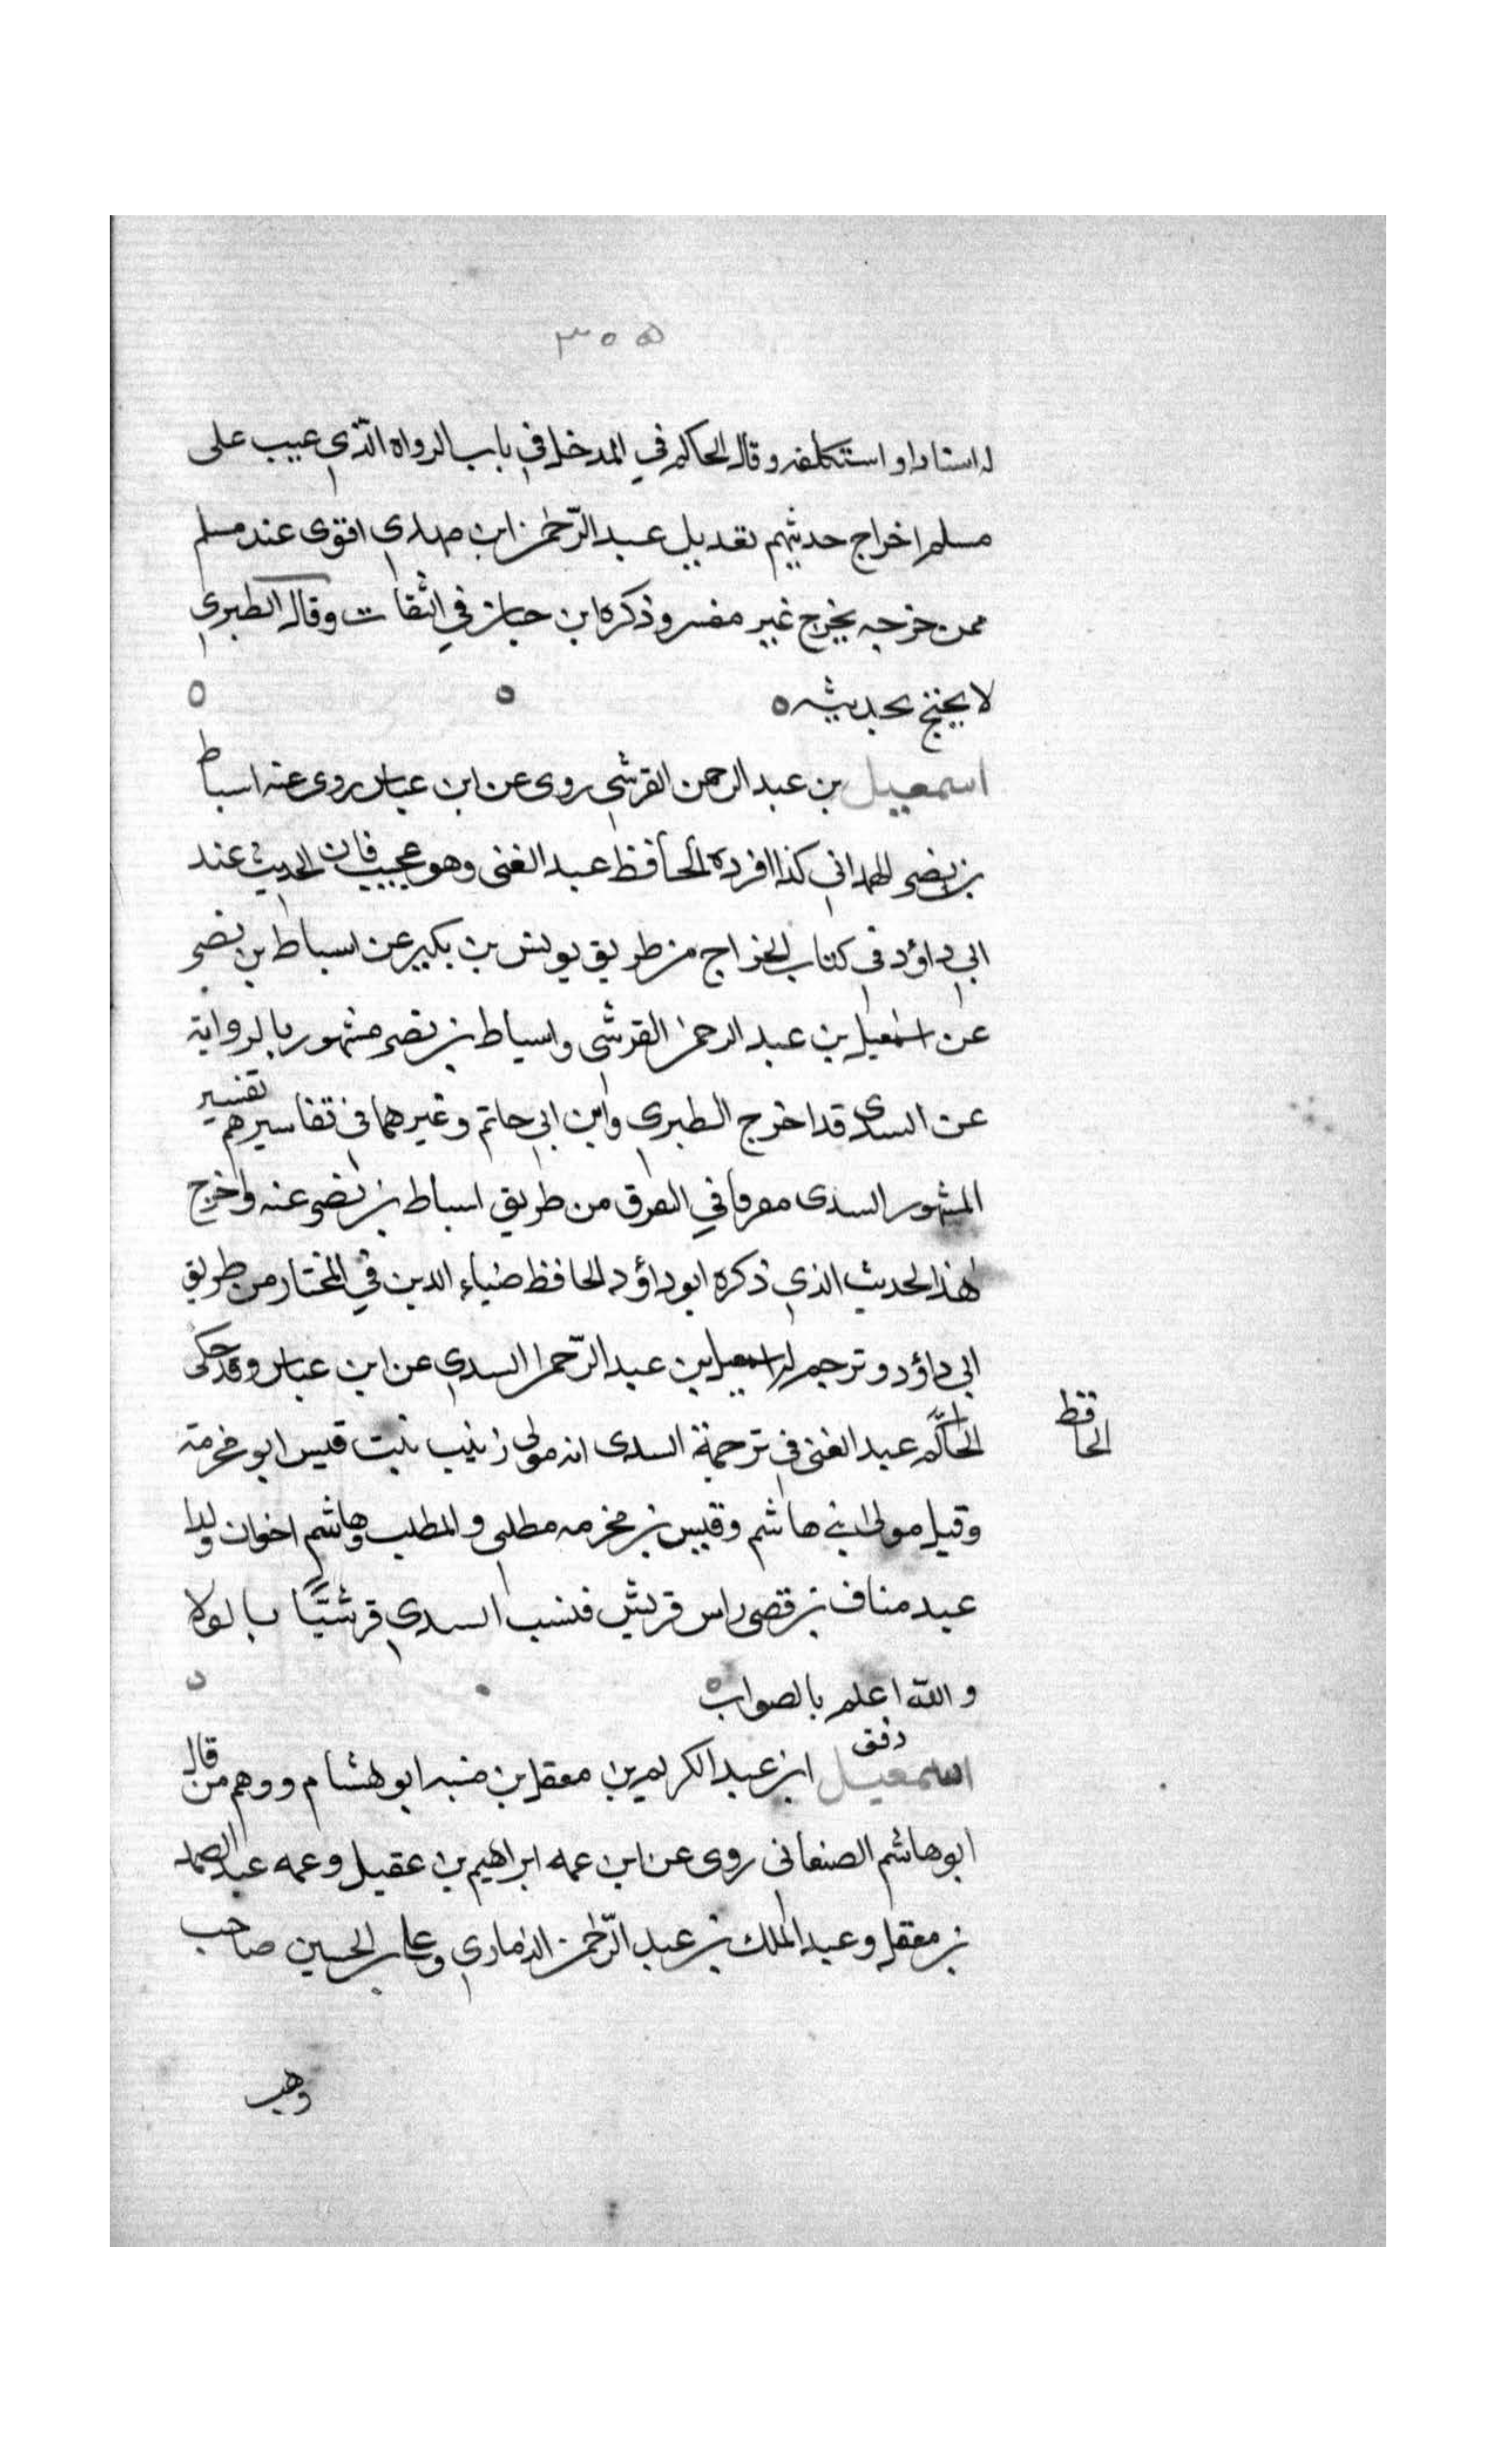 ٣٠٥
له اسنادا واستكلفه وقال الحاكم في المدخل في باب الرواه الذي عيب على
مسلم اخراج حديثهم تعديل عبد الرحمن ابن مهدي اقوى عند مسلم
ممن خرجه بخرج غير مفسر وذكره ابن حبان في الثقات وقال الطبري
لا يحتج بحديثه
اسمعيل بن عبد الرحمن القرشي روى عن ابن عباس روى عنه اسباط
بن نصر الهمداني كذا افرده الحافظ عبد الغنى وهو عجيب فان الحديث عند
ابي داؤد في كتاب الخراج من طريق يونس بن بكير عن اسباط بن نصر
عن اسمعيل بن عبد الرحمن القرشى واسباط بن نصر مشهور بالرواية
عن السدى قد اخرج الطبري وابن ابي حاتم وغيرهما في تفاسيرهم تفسير
المشهور السدى مفرقا في الفرق من طريق اسباط بن نصر عنه واخرج
هذا الحديث الذي ذكره ابو داؤد الحافظ ضياء الدين في المختار من طريق
ابي داؤد وترجم له اسمعيل بن عبد الرحمن السدي عن ابن عباس وقد حكى
الحاكم عبد الغنى في ترجمة السدى انه مولى زينب بنت قيس ابو مخرمة
الحافظ
وقيل مولى ابني هاشم وقيس بن مخرمه مطلبى والمطلب وهاشم اخوان ولدا
عبد مناف بن قصى راس قريش فنسب السدي قرشيًا بالولا
والله اعلم بالصواب
دفق
اسمعيل ابن عبد الكريم بن معقل بن منبه ابو هشام ووهم من قال
ابو هاشم الصنعانى روى عن ابن عمه ابراهيم بن عقيل وعمه عبد الصمد
بن معقل وعبد الملك بن عبد الرحمن الذماري وعلى بن الحسين صاحب
وهب